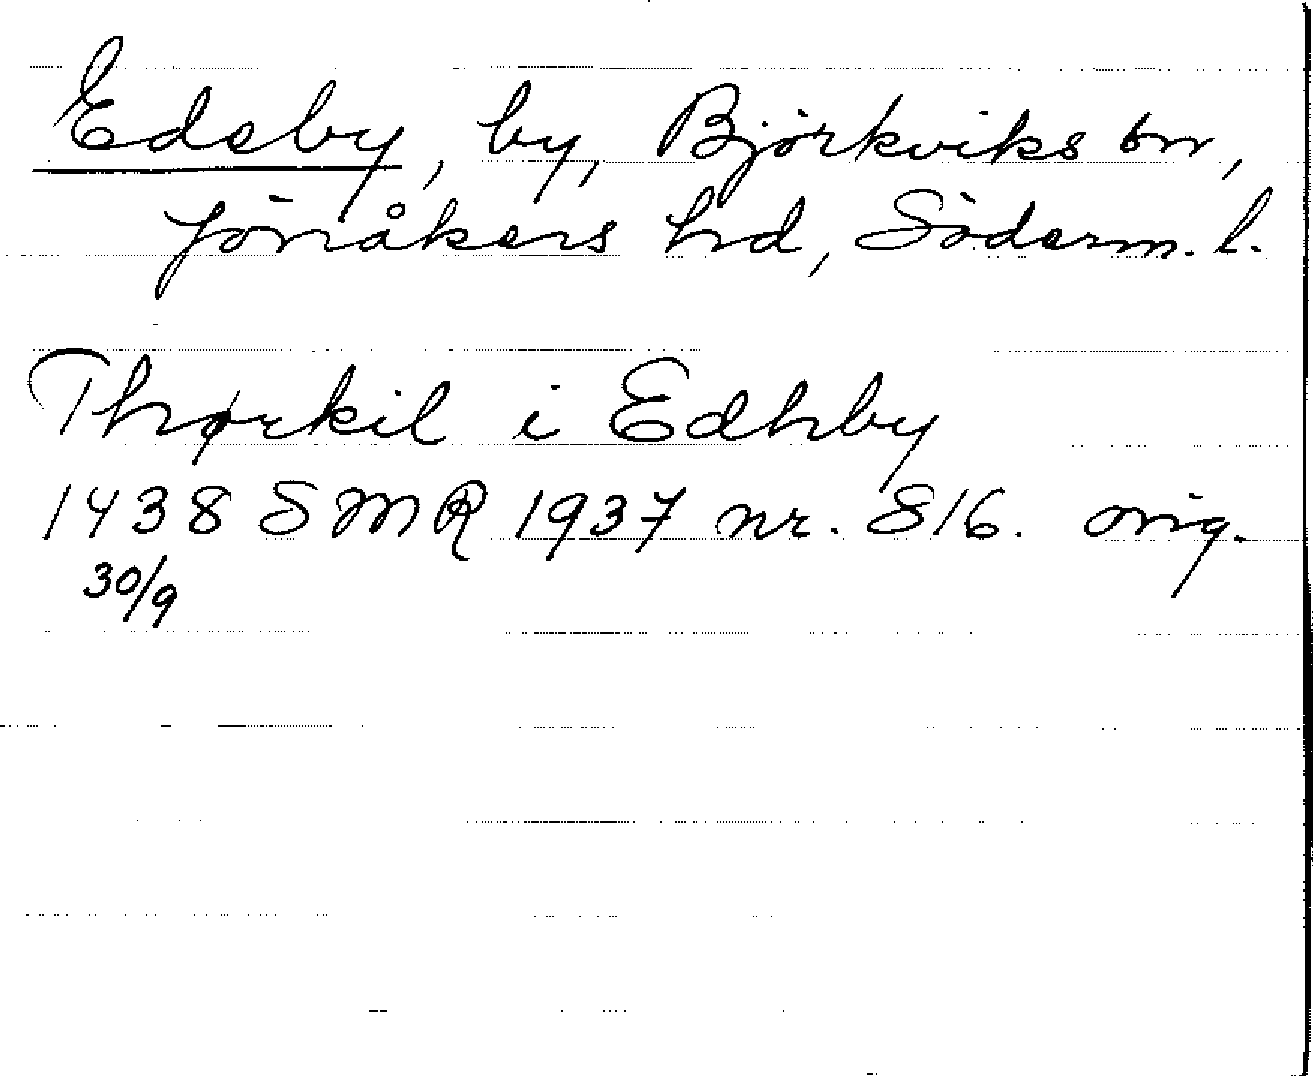 Edeby, by, Björkviks sn,
Jönåkers hd, Söderm. l.
Thørkil i Edhby
1438 SMR 1937 nr. 816. orig.
30/9